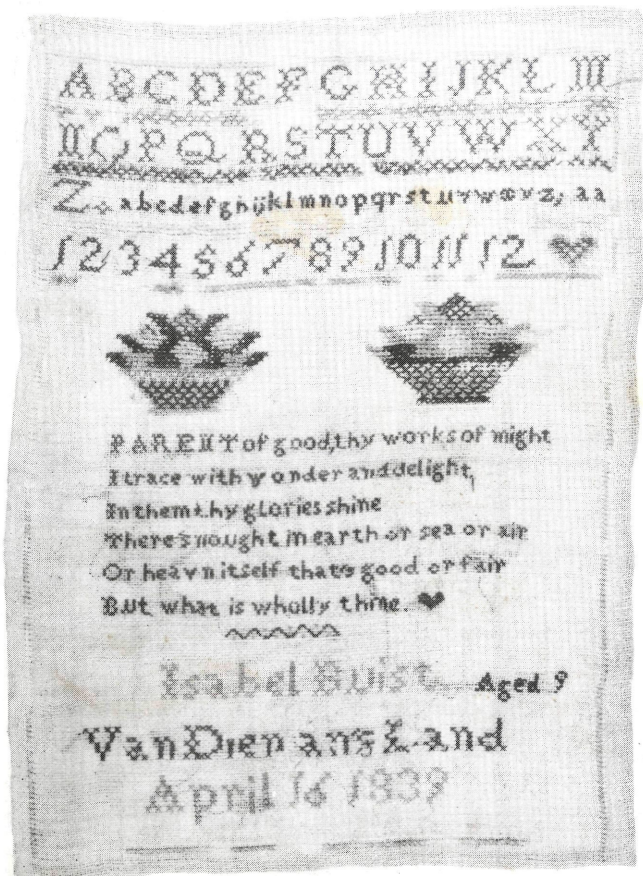 A B C D E F G H I J K L M
N O P Q R S T U V W X Y
Z a b c d e f g h i j k l m n o p q r s t u v w x y z, a a
1 2 3 4 5 6 7 8 9 10 11 12
PARENT of good, thy works of might
I trace with wonder and delight,
In them thy glories shine
There's nought in earth or sea or air
Or heavn itself thats good or fair
But what is wholly thine.
Isabel Buist Aged 9
Van Diemans Land
April 16 1839